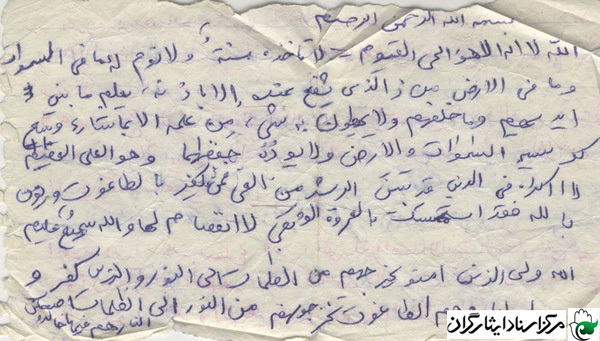 بسمه الله الرحمن الرحیم
الله لا اله الا هو الحی القیوم لا تاخذه سنةٌ ولا نوم له ما فی السموات
وما فی الارض من ذالذی یشفع عنده إلا باذنه، یعلم ما بین
ایدیهم وما خلفهم ولا یحیطون بشیٍ، مِن علمه الا بماشاءَ وسِعَ
کرسیه السَموات والارض ولا یوده حفظهما وهو العلی العظیم
لا اکراه فی الدین قد تبین الرشد من الغی فمن یکفر بالطاغوت و یومن
بالله فقد استمسک بالعروة الوثقی لا انفصام لها والله سمیعٌ علیم
الله ولی الذین امنو یخرجهم من الظلمات الی النور والذین کفرو
الطاغوت یخرجونهم من النور الی الظلمات اصحاب
النار هم فیها خالدون
مرکز اسناد ایثارگران